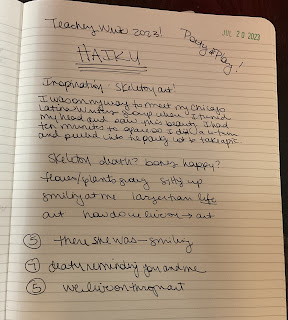 Teachers Write 2023!
Poetry & Play!
JUL 20 2023
HAIKU
Inspiration: skeleton art!
I was on my way to meet my Chicago
Latina Writers group when I turned
my head and saw this beauty. I had
ten minutes to spare so I did a u-turn
and pulled into the parking lot to take a pic
skeleton death? bones happy?
flower/plants going up
smiling at me larger than life
art how do we live on → art
5 there she was - smiling
7 death reminding you and me
5 we live on through art